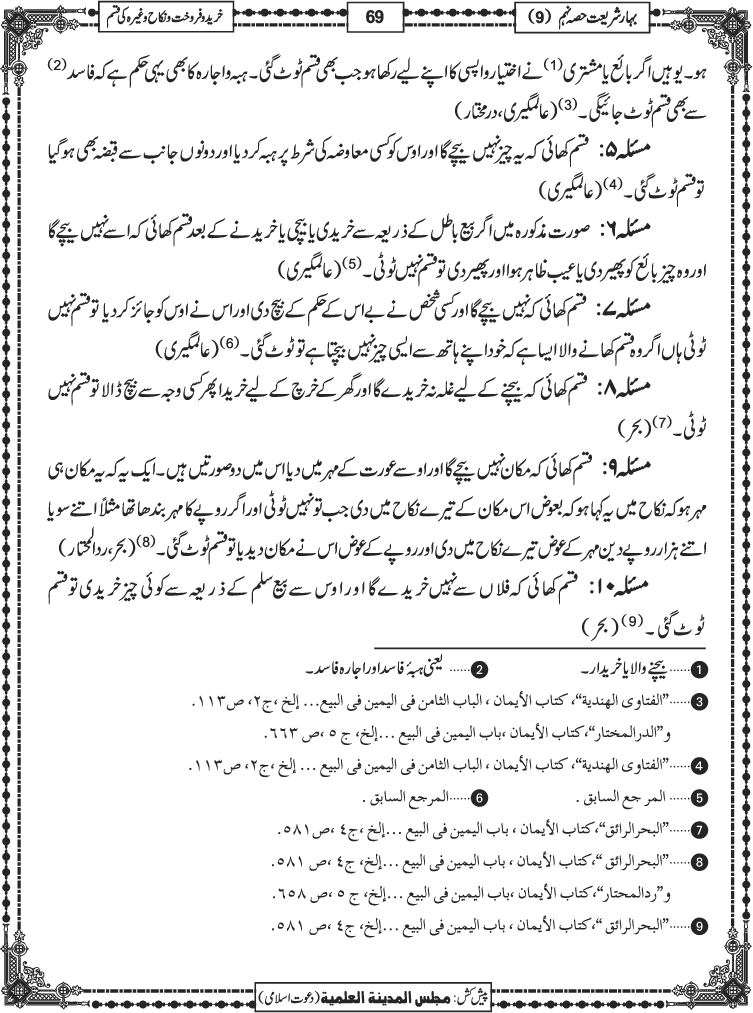 بہار شریعت حصہ نہم (9)
69
خرید و فروخت و نکاح وغیرہ کی قسم
ہو۔ یوہیں اگر بائع یا مشتری (1) نے اختیار واپسی کا اپنے لیے رکھا ہو جب بھی قسم ٹوٹ گئی۔ ہبہ و اجارہ کا بھی یہی حکم ہے کہ فاسد (2)
سے بھی قسم ٹوٹ جائیگی۔ (3) (عالمگیری، درمختار)
مسئلہ ۵: قسم کھائی کہ یہ چیز نہیں بیچے گا اور اوس کو کسی معاوضہ کی شرط پر ہبہ کر دیا اور دونوں جانب سے قبضہ بھی ہوگیا
تو قسم ٹوٹ گئی۔ (4) (عالمگیری)
مسئلہ ۶: صورت مذکورہ میں اگر بیع باطل کے ذریعہ سے خریدی یا بیچی یا خریدنے کے بعد قسم کھائی کہ اسے نہیں بیچے گا
اور وہ چیز بائع کو پھیر دی یا عیب ظاہر ہوا اور پھیر دی تو قسم نہیں ٹوٹی۔ (5) (عالمگیری)
مسئلہ ۷: قسم کھائی کہ نہیں بیچے گا اور کسی شخص نے بے اس کے حکم کے بیچ دی اور اس نے اوس کو جائز کر دیا تو قسم نہیں
ٹوٹی ہاں اگر وہ قسم کھانے والا ایسا ہے کہ خود اپنے ہاتھ سے ایسی چیز نہیں بیچتا ہے تو ٹوٹ گئی۔ (6) (عالمگیری)
مسئلہ ۸: قسم کھائی کہ بیچنے کے لیے غلہ نہ خریدے گا اور گھر کے خرچ کے لیے خریدا پھر کسی وجہ سے بیچ ڈالا تو قسم نہیں
ٹوٹی۔ (7) (بحر)
مسئلہ ۹: قسم کھائی کہ مکان نہیں بیچے گا اور اوسے عورت کے مہر میں دیا اس میں دو صورتیں ہیں۔ ایک یہ کہ یہ مکان ہی
مہر ہو کہ نکاح میں یہ کہا ہو کہ بعوض اس مکان کے تیرے نکاح میں دی جب تو نہیں ٹوٹی اور اگر روپے کا مہر بندھا تھا مثلاً اتنے سو یا
اتنے ہزار روپے دین مہر کے عوض تیرے نکاح میں دی اور روپے کے عوض اس نے مکان دیدیا تو قسم ٹوٹ گئی۔ (8) (بحر، ردالمحتار)
مسئلہ ۱۰: قسم کھائی کہ فلاں سے نہیں خریدے گا اور اوس سے بیع سلم کے ذریعہ سے کوئی چیز خریدی تو قسم
ٹوٹ گئی۔ (9) (بحر)
1 ......بیچنے والا یا خریدار۔ 2 ...... یعنی ہبۂ فاسد اور اجارہ فاسد۔
3 ......"الفتاوی الهندية"، کتاب الأیمان، الباب الثامن فی الیمین فی البیع... إلخ، ج٢، ص١١٣.
و"الدرالمختار"، کتاب الأیمان، باب الیمین فی البیع ...إلخ، ج ٥، ص ٦٦٣.
4 ......"الفتاوی الهندية"، کتاب الأیمان، الباب الثامن فی الیمین فی البیع... إلخ، ج٢، ص١١٣.
5 ...... المرجع السابق. 6 ......المرجع السابق.
7 ......"البحرالرائق"، کتاب الأیمان، باب الیمین فی البیع ...إلخ، ج٤، ص٥٨١.
8 ......"البحرالرائق"، کتاب الأیمان، باب الیمین فی البیع ...إلخ، ج٤، ص ٥٨١.
و"ردالمحتار"، کتاب الأیمان، باب الیمین فی البیع ...إلخ، ج ٥، ص ٦٥٨.
9 ......"البحرالرائق"، کتاب الأیمان، باب الیمین فی البیع ...إلخ، ج٤، ص ٥٨١.
پیش کش: مجلس المدينة العلمية (دعوت اسلامی)